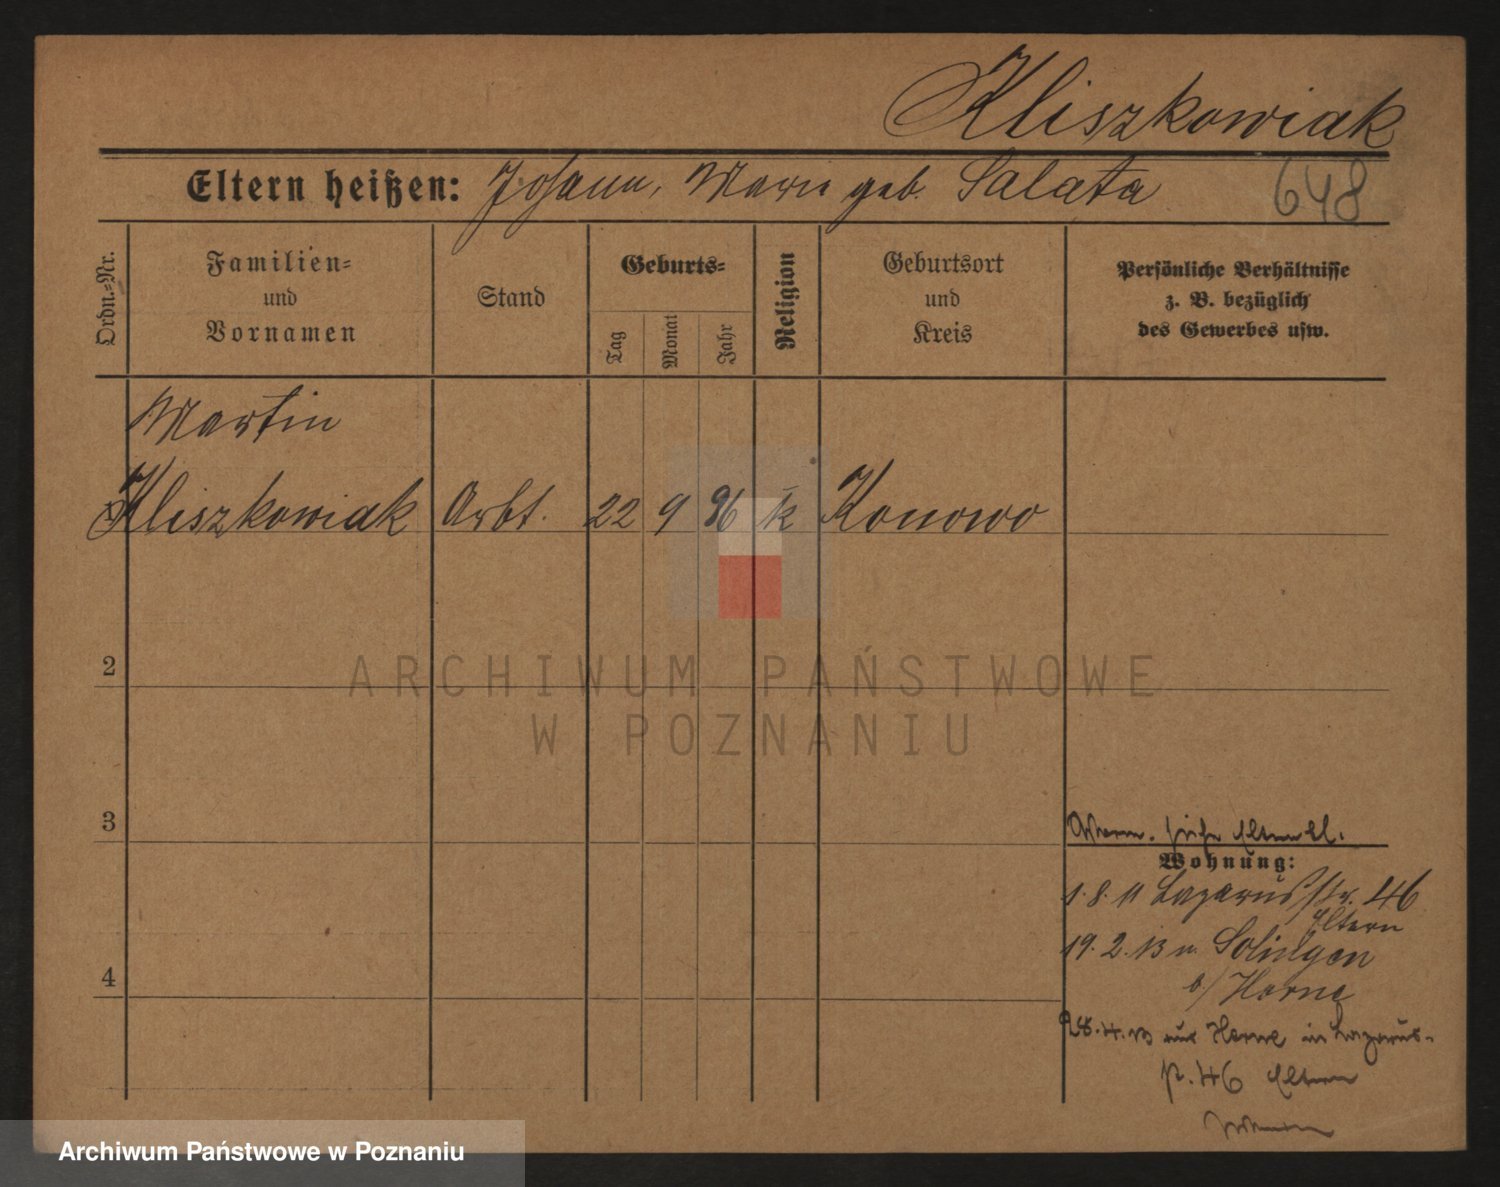 Kliszkowiak
Eltern heißen: Johann, Marie geb. Salata 648
Ordn.=Nr.
Familien=
und
Vornamen
Stand
Geburts=
Tag
Monat
Jahr
Religion
Geburtsort
und
Kreis
Persönliche Verhältnisse
z. B. bezüglich
des Gewerbes usw.
Martin
Kliszkowiak Arbt. 22 9 96 k Konowo
2
ARCHIWUM PAŃSTWOWE
W POZNANIU
3
siehe Eltern bl.
Wohnung:
1. 8. 11 Lazarusstr. 46
Eltern
19. 2. 13 n. Solingen
b/ Herne
4
28. 4. 13 aus Herne in Lazarus-
46 Eltern
Archiwum Państwowe w Poznaniu